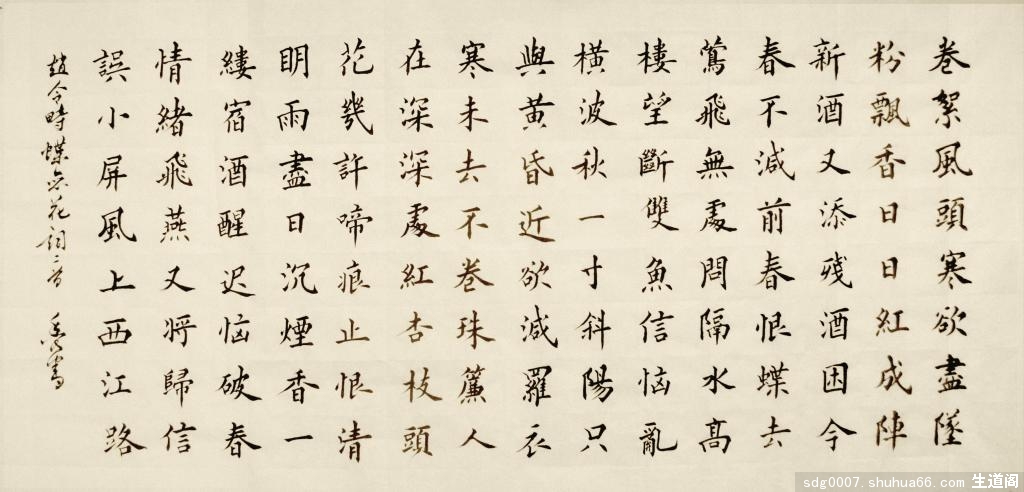 卷絮風頭寒欲盡墜
粉飄香日日紅成陣
新酒又添殘酒困今
春不減前春恨蝶去
鶯飛無處問隔水高
樓望斷雙魚信惱亂
橫波秋一寸斜陽只
與黃昏近欲減羅衣
寒未去不卷珠簾人
在深深處紅杏枝頭
花幾許啼痕止恨清
明雨盡日沉煙香一
縷宿酒醒迟惱破春
情緒飛燕又將歸信
誤小屏風上西江路
趙令時蝶恋花詞二首
sdg0007.shuhua66.com 生道阁